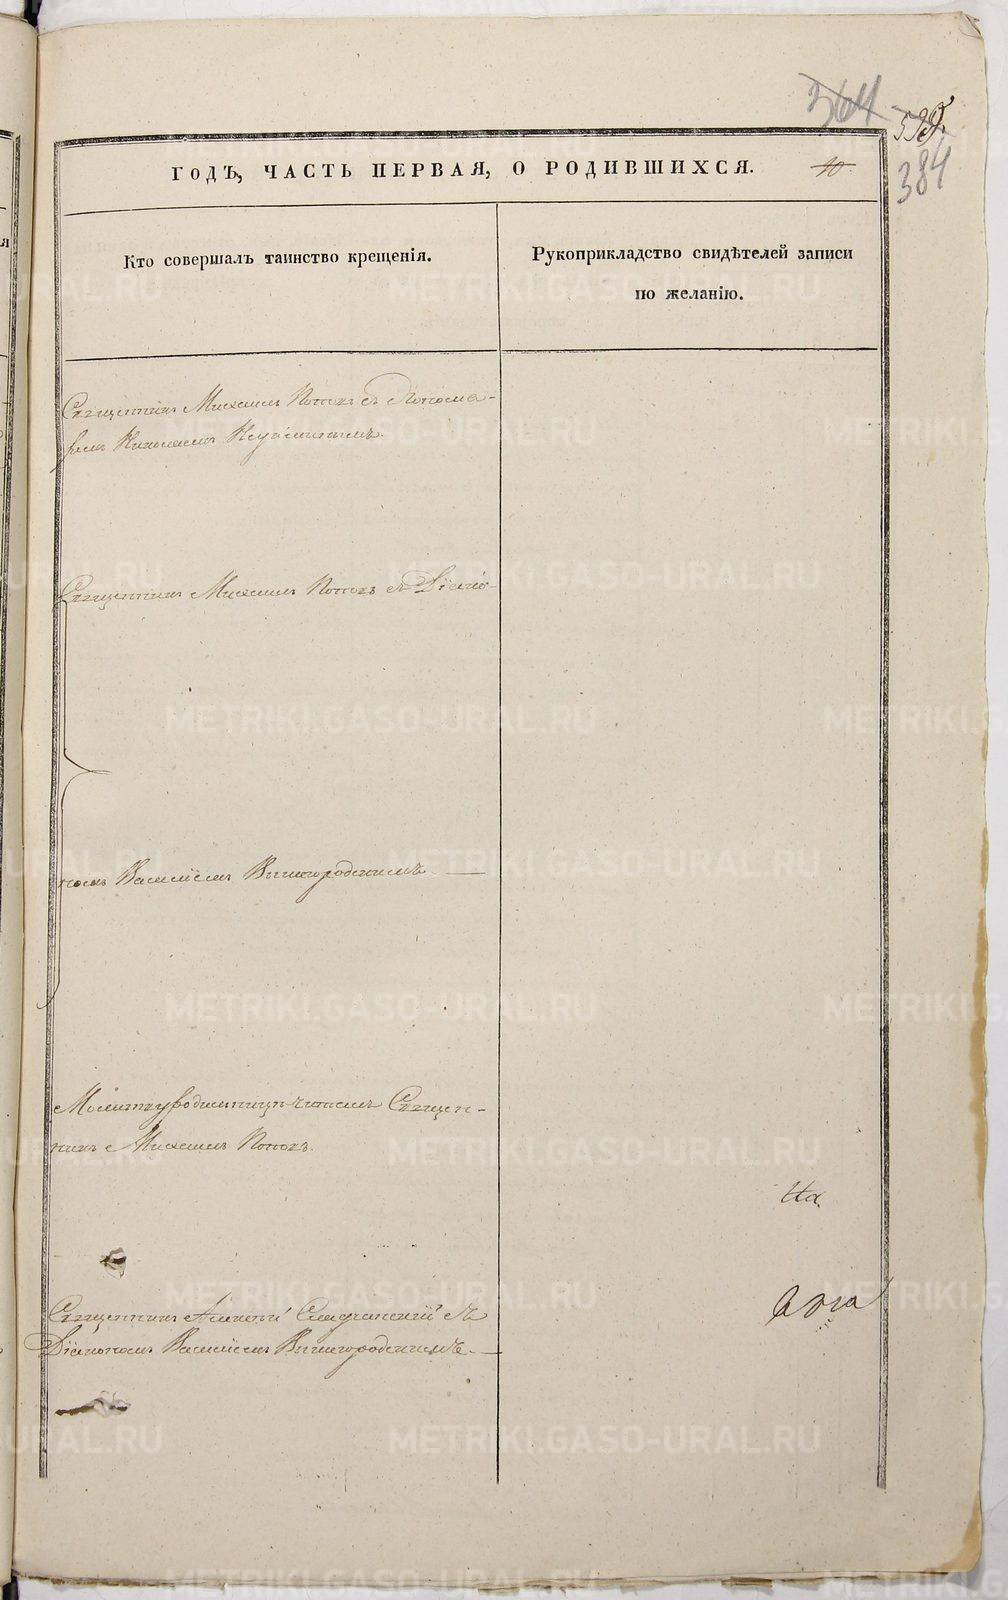 364
384
ГОДЪ, ЧАСТЬ ПЕРВАЯ, О РОДИВШИХСЯ.
40.
Кто совершалъ таинство крещенія.
Рукоприкладство свидѣтелей записи
по желанію.
Священникъ Михаилъ Поповъ съ Понома-
ремъ Николаемъ
Священникъ Михаилъ Поповъ съ Діако-
номъ Василіемъ Вышегородскимъ.
Молитву родильницѣ читалъ Священ-
никъ Михаилъ Поповъ.
Священникъ Алексѣй съ
Діакономъ Василіемъ Вышегородскимъ.
METRIKI.GASO-URAL.RU